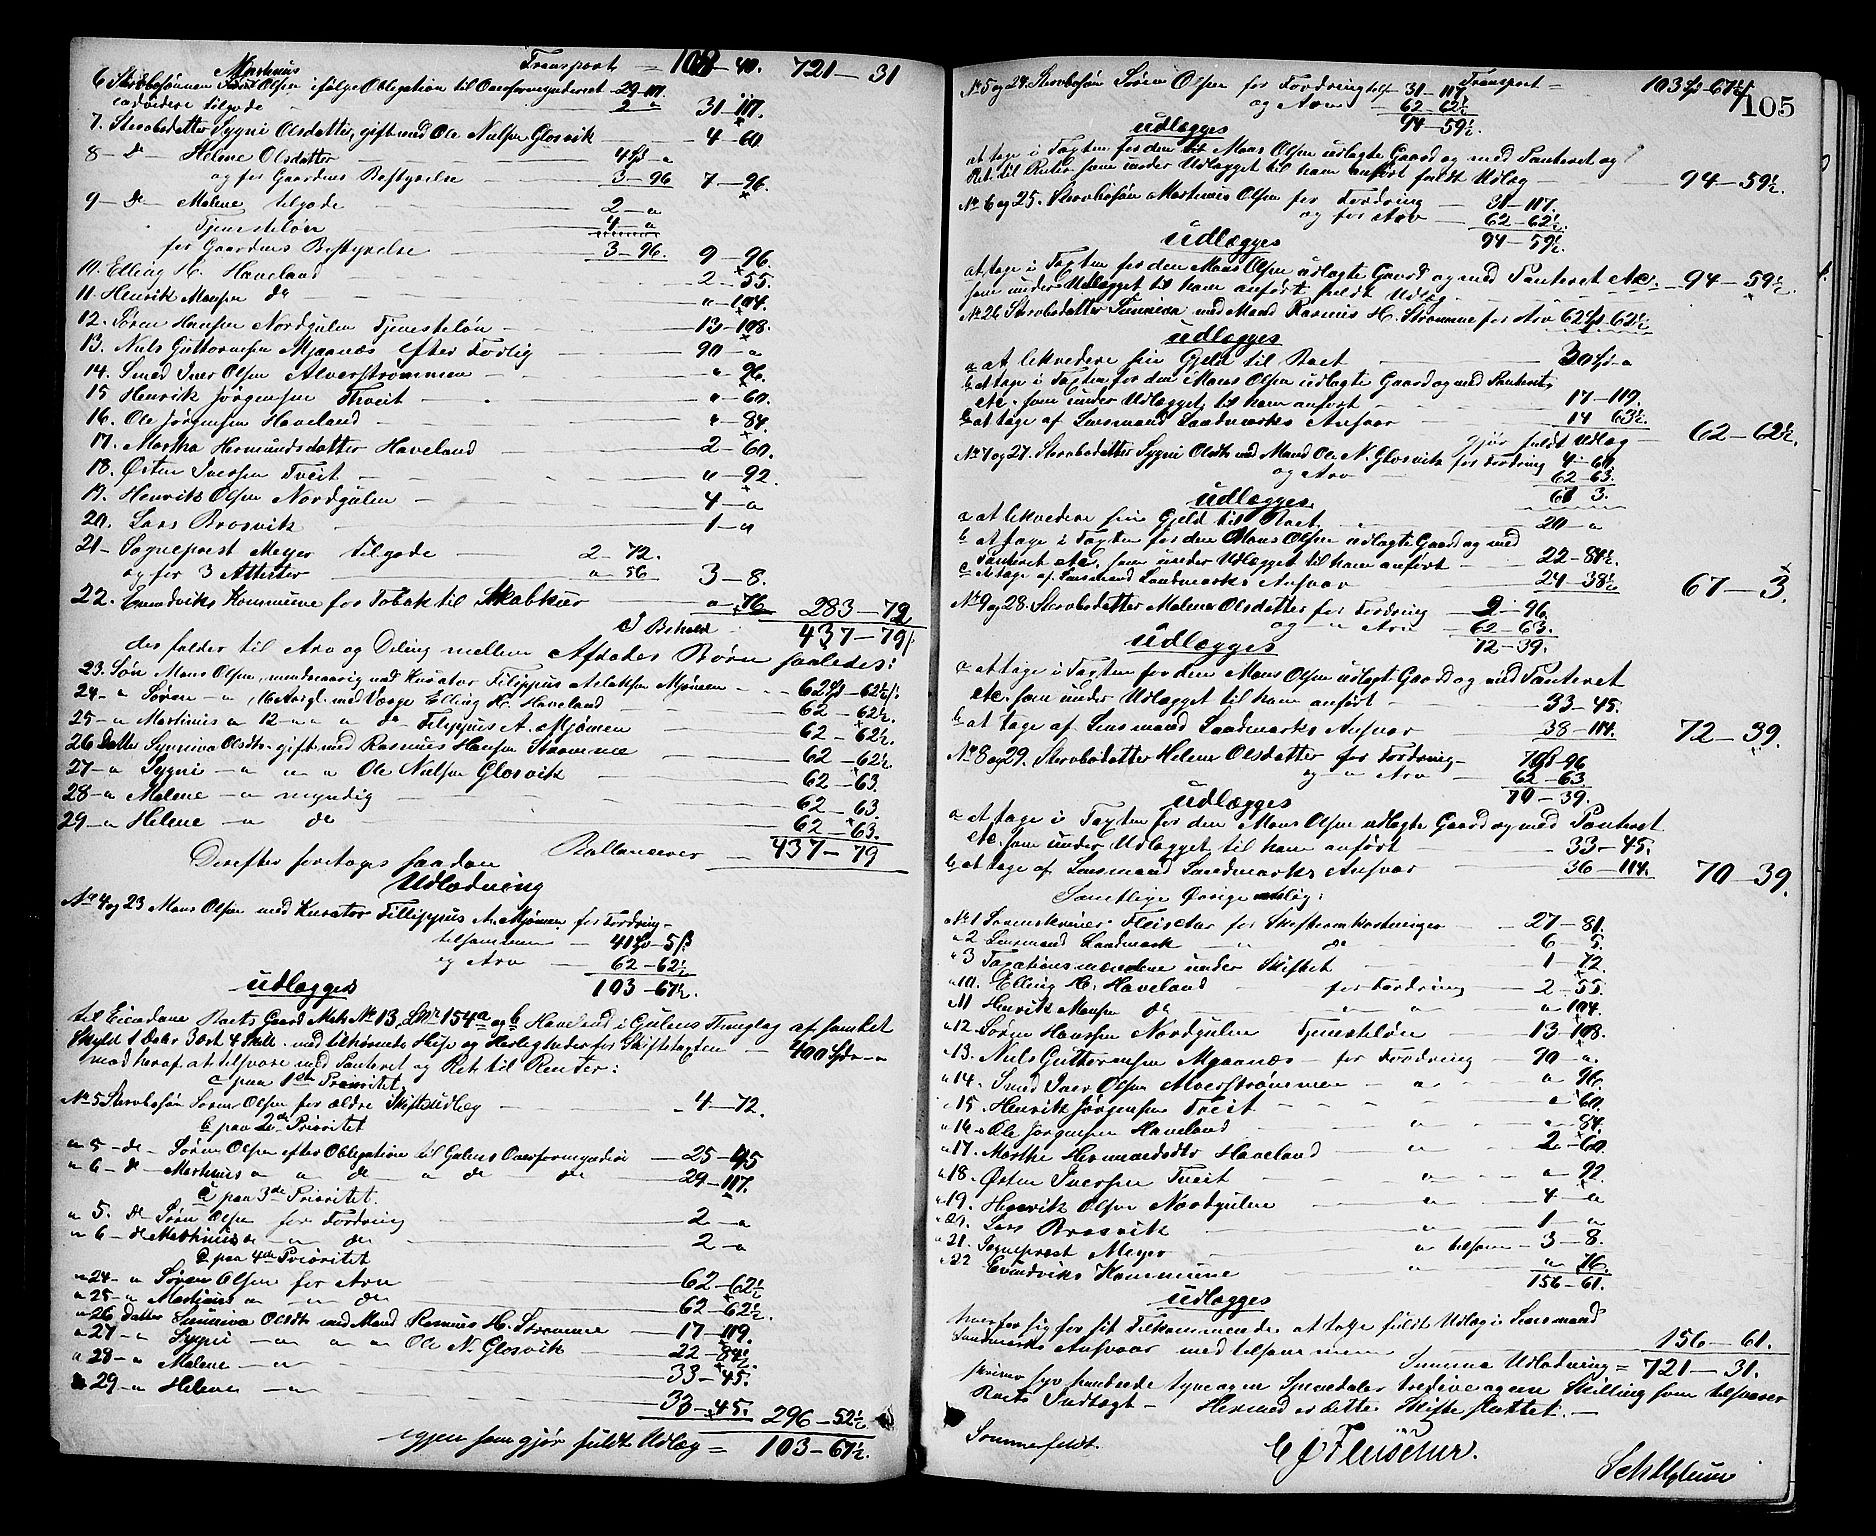 Transport = 108-40. 721-31
6 Sterbosønnen Martinus Olsen ifølge Obligation til Overformynderiet 29-117.
endvidere tilgode 2 " 31-117.
7. Sterbodatter Sygni Olsdatter, gift med Ole Nielsen Glosvik 4-60
8 - do - Helene Olsdatter 4 Sp - "
og for Gaardens Bestyrelse 3-96 7-96.
9 - do - Malene tilgode 2-"
Tjenesteløn 4-"
for Gaardens Bestyrelse 3-96. 9-96.
10. Elling H. Haveland 2-55.
11. Henrik Monsen do "-104.
12. Søren Hansen Nordgulen Tjenesteløn 13-108.
13. Niels Guttormsen Mjaanæs efter Forlig 90-"
14. Smed Iver Olsen Alverstrømmen "-96.
15 Henrik Jørgensen Tveit "-60.
16. Ole Jørgensen Haveland "-84.
17. Martha Hermundsdatter Haveland 2-60.
18. Østen Iversen Tveit "-92.
19. Henrik Olsen Nordgulen 4-"
20. Lars Brosvik 1-"
21- Sogneprest Meyer tilgode 2-72.
og for 3 Attester "-56 3-8.
22. Evindviks Kommune for Tobak til Skabkur "-76 283-72
I Behold 437-79
der falder til Arv og Deling mellem Afdødes Børn saaledes:
23. Søn Mons Olsen, mindreaarig med Kurator Filippus Mjømen 62 Sp-62½
24- " Søren - " 16 Aar med Værge Elling H. Haveland 62-62½.
25- " Martinus " 12 - " " do Filippus A. Mjømen 62-62½.
26 Datter Synniva Olsdtr gift med Rasmus Hansen Strømme 62-62½
27- " Sygni - " " " Ole Nielsen Glosvik 62-63.
28- " Malene - " myndig 62-63.
29- " Helene - " do 62-63.
Ballancerer 437-79
Derefter foretages saadan
Udlodning
No 4 og 23 Mons Olsen med Kurator Fillippus A. Mjømen for Fordring
tilsammen 41 Sp-5 β
og Arv 62-62½
103-67½.
udlægges
til Eiendom Boets Gaard Mtr No 13, LNr 154a og b Haveland i Gulens Thinglag af samlet
Skyld 1 Daler 3 Ort 4 Skill. med tilhørende Huse og Herligheder for Skiftetaxten 400 Spd-"
mod heraf at tilsvare med Panteret og Ret til Renter:
a paa 1ste Prioritet
No 5 Sterbosøn Søren Olsen for ældre Skifteudlæg 4-72.
b paa 2den Prioritet
" 5- do- Søren Olsen efter Obligation til Gulens Overformynderi 25-45
" 6- do- Martinus " " do " do do 29-117.
c paa 3de Prioritet.
" 5. do Søren Olsen for Fordring 2-"
" 6- do Martinus " " do 2-"
d paa 4de Prioritet
" 24- " Søren Olsen for Arv 62-62½
" 25- " Martinus " " do 62-62½.
" 26 Datter Sunniva Olsdtr med Mand Rasmus H. Strømme 17-119.
" 27- " Sygni - " " " Ole N. Glosvik 22-84½
" 28- " Malene - " 33-45.
" 29- " Helene - " 33-45. 296-52½
igjen som gjør fuldt Udlæg = 103-67½.
105
Transport = 103 Sp-67½
No 5 og 24. Sterbosøn Søren Olsen for Fordring 31-117
og Arv 62-62½
94-59½.
udlægges
at tage i Taxten for den til Mons Olsen udlagte Gaard og med Panteret og
Ret til Renter som under Udlægget til ham anført fuldt Udlæg 94-59½.
No 6 og 25. Sterbosøn Martinus Olsen for Fordring 31-117.
og for Arv 62-62½.
94-59½.
udlægges
at tage i Taxten for den Mons Olsen udlagte Gaard og med Panteret etc.
som under Udlægget til ham anført fuldt Udlæg 94-59½.
No 26 Sterbodatter Sunniva med Mand Rasmus H. Strømme for Arv 62 Sp 62½
udlægges
a at likvidere sin Gjeld til Boet 30 Sp-"
b at tage i Taxten for den Mons Olsen udlagte Gaard og med Panteret
etc. som under Udlægget til ham anført 17-119.
c at tage af Lensmand Landmarks Ansvar 14 63½.
gjør fuldt Udlæg 62-62½.
No 7 og 27. Sterbodatter Sygni Olsdtr med Mand Ole N. Glosvik for Fordring 4-60.
og Arv 62-63.
67 3.
udlægges
a at likvidere sin Gjeld til Boet 20-"
b at tage i Taxten for den Mons Olsen udlagte Gaard og med
Panteret etc. som under Udlægget til ham anført 22-84½
c at tage af Lensmand Landmarks Ansvar 24-38½ 67-3.
No 9 og 28. Sterbodatter Malene Olsdatter for Fordring 9-96.
og " Arv 62-63.
72-39.
udlægges
a at tage i Taxten for den Mons Olsen udlagte Gaard og med Panteret
etc. som under Udlægget til ham anført 33-45.
b at tage af Lensmand Landmarks Ansvar 38-114. 72-39.
No 8 og 29. Sterbodatter Helene Olsdatter for Fordring 7 Sp-96
og " Arv 62-63
70-39.
udlægges
a at tage i Taxten for den Mons Olsen udlagte Gaard og med Panteret
etc. som under Udlægget til ham anført 33-45.
b at tage af Lensmand Landmarks Ansvar 36-114. 70-39.
Samtlige øvrige :
No 1 Sorenskriver Fleischer for Skifteomkostninger 27-81.
" 2 Lensmand Landmark " do 6-5.
" 3 Taxationsmændene under Skiftet 1-72.
" 10. Elling H. Haveland for Fordring 2-55.
" 11 Henrik Monsen do " " "-104.
" 12 Søren Hansen Nordgulen Tjenesteløn 13-108.
" 13. Niels Guttormsen Mjaanæs - for Fordring 90-".
" 14. Smed Iver Olsen Alverstrømmen " "-96.
" 15. Henrik Jørgensen Tveit "-60.
" 16 Ole Jørgensen Haveland " "-84.
" 17. Marthe Hermundsdtr Haveland " 2-60
" 18. Østen Iversen Tveit " "-92.
" 19. Henrik Olsen Nordgulen " 4-"
" 20. Lars Brosvik " 1-"
" 21. Sogneprest Meyer " tilsam- 3-8.
" 22 Evindviks Kommune " "-76.
156-61.
udlægges
hver for sig for sit Tilkommende at tage fuldt Udlæg i Lensmand
Landmarks Ansvar med tilsammen 156-61.
Summa Udlodning = 721-31.
skriver syv hundrede tyve og en Speciedaler tredive og en Skilling som tilsvarer
Boets Indtægt - Hermed er dette Skifte sluttet.
Sommerfeldt.
C J Fleischer.